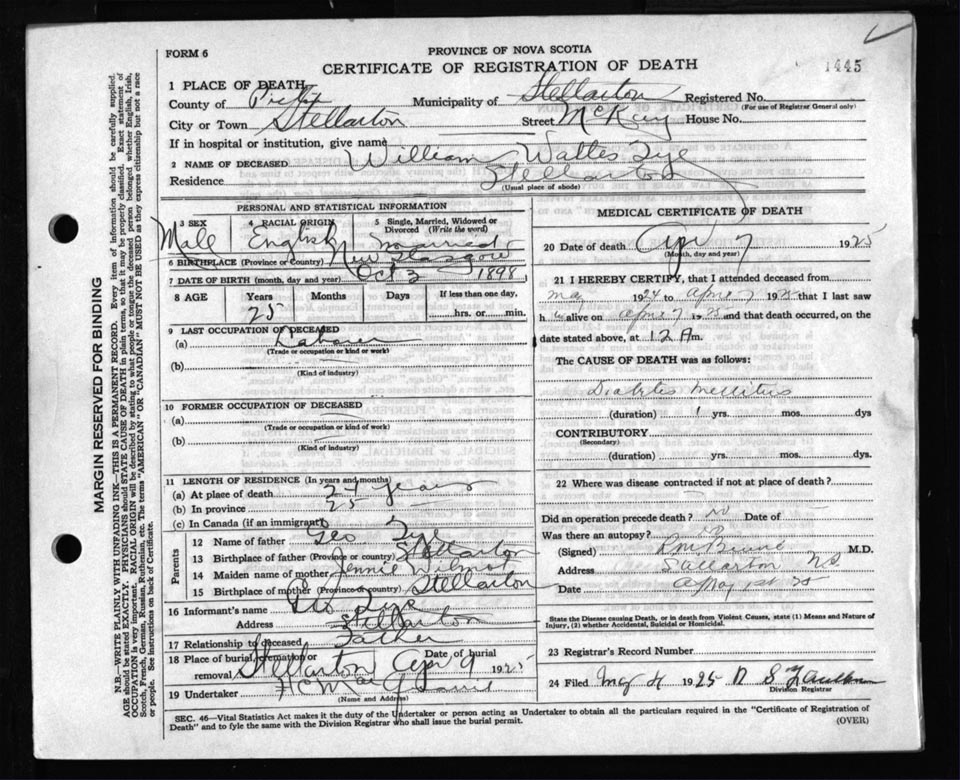 FORM 6
PROVINCE OF NOVA SCOTIA
CERTIFICATE OF REGISTRATION OF DEATH
1445
1 PLACE OF DEATH
County of Pictou Municipality of Stellarton Registered No.
(For use of Registrar General only)
City or Town Stellarton Street McKay House No.
If in hospital or institution, give name
2 NAME OF DECEASED William Walter Tye
Residence Stellarton
(Usual place of abode)
PERSONAL AND STATISTICAL INFORMATION
3 SEX Male
4 RACIAL ORIGIN English
5 Single, Married, Widowed or Divorced (Write the word) Married
6 BIRTHPLACE (Province or Country) New Glasgow
7 DATE OF BIRTH (month, day and year) Oct 3 1898
8 AGE Years Months Days If less than one day,
25 hrs. or min.
9 LAST OCCUPATION OF DECEASED
(a) Laborer
(Trade or occupation or kind or work)
(b)
(Kind of industry)
10 FORMER OCCUPATION OF DECEASED
(a)
(Trade or occupation or kind of work)
(b)
(Kind of industry)
11 LENGTH OF RESIDENCE (In years and months)
(a) At place of death 24 years
(b) In province 25
(c) In Canada (if an immigrant)
Parents
12 Name of father Geo Tye
13 Birthplace of father (Province or country) Stellarton
14 Maiden name of mother Jennie Wilmot
15 Birthplace of mother (Province or country) Stellarton
16 Informant's name Geo Tye
Address Stellarton
17 Relationship to deceased Father
18 Place of burial, cremation or removal Stellarton Date of burial Apr 9 1925
19 Undertaker
(Name and Address)
MEDICAL CERTIFICATE OF DEATH
20 Date of death Apr 7 1925
(Month, day and year)
21 I HEREBY CERTIFY, that I attended deceased from
1924 to Apr 7 1925 that I last saw
h alive on Apr 7 1925 and that death occurred, on
date stated above, at 12 A m.
The CAUSE OF DEATH was as follows:
Diabetes Mellitus
(duration) 1 yrs. mos. dys
CONTRIBUTORY
(Secondary)
(duration) yrs. mos. dys.
22 Where was disease contracted if not at place of death?
Did an operation precede death? no Date of
Was there an autopsy?
(Signed) M.D.
Address Stellarton NS
Date
State the Disease causing Death, or in death from Violent Causes, state (1) Means and Nature of Injury, (2) whether Accidental, Suicidal or Homicidal.
23 Registrar's Record Number
24 Filed May 4 1925
Division Registrar
SEC. 46—Vital Statistics Act makes it the duty of the Undertaker or person acting as Undertaker to obtain all the particulars required in the "Certificate of Registration of
Death" and to fyle the same with the Division Registrar who shall issue the burial permit.
(OVER)
MARGIN RESERVED FOR BINDING
N.B.—WRITE PLAINLY WITH UNFADING INK—THIS IS A PERMANENT RECORD. Every item of information should be carefully supplied.
AGE should be stated EXACTLY. PHYSICIANS should STATE CAUSE OF DEATH in plain terms, so that it may be properly classified. Exact statement of
OCCUPATION is very important. RACIAL ORIGIN will be described by stating to what people or tongue the deceased person belonged whether English, Irish,
Scotch, French, German, Russian, Ruthenian, etc. The terms "AMERICAN" OR "CANADIAN" MUST NOT BE USED as they express citizenship but not a race
or people. See instructions on back of Certificate.